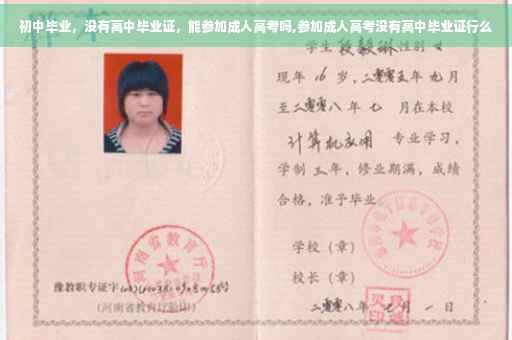 初中毕业，没有高中毕业证，能参加成人高考吗,参加成人高考没有高中毕业证行么
学生 段毅琳 性别 女
现年 16 岁，二零零五年 九月
至二零零八 年 七 月在本校
计算机应用 专业学习，
学制 三 年，修业期满，成绩
合格，准予毕业
学校（章）
校长（章）
二零零八年 七 月 一 日
河南省教育厅
豫教职专证字
（河南省教育厅验印）